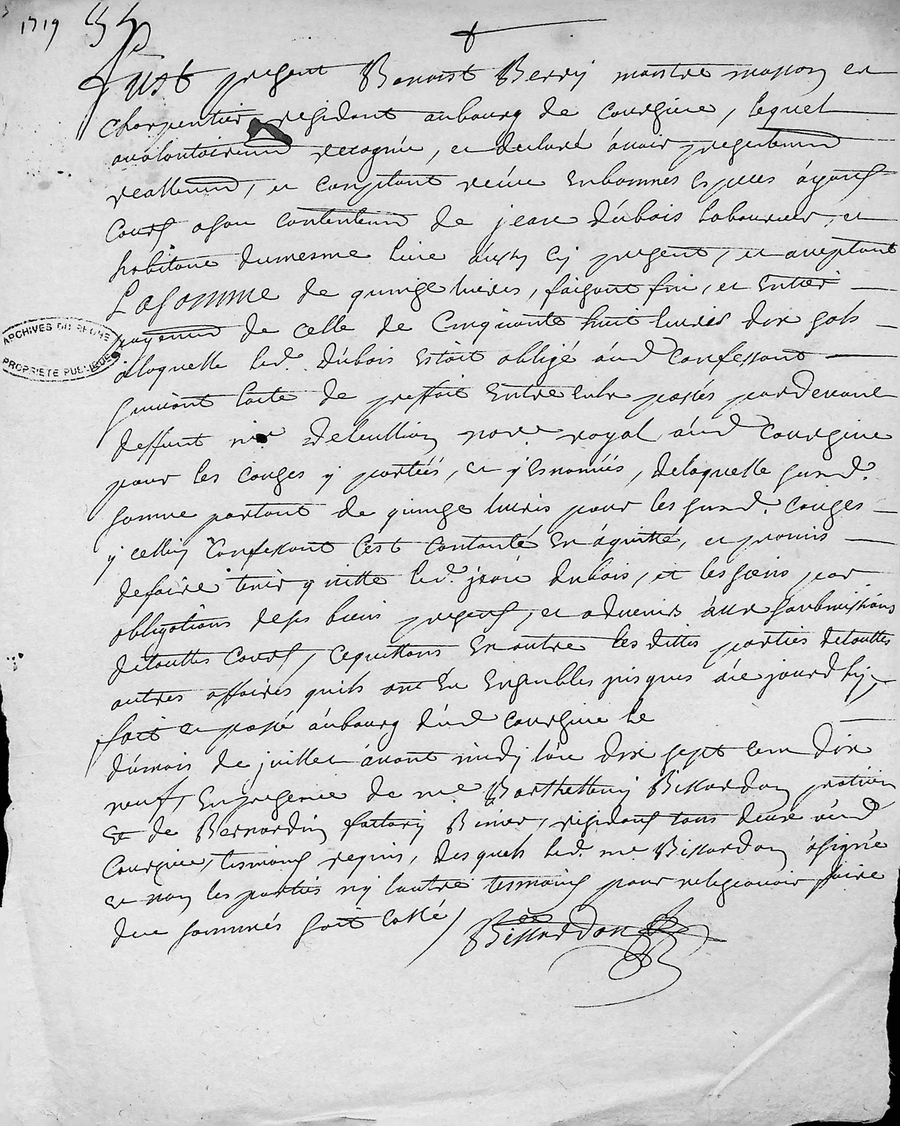 1719
Fust present Benoist Berry maistre masson et
charpentier residant au bourg de Courgine, lequel
a volontairemt recognu, et declaré avoir presentemt
reallemt, et comptant reçue en bonnes especes ayant
cours a son contentemt de jean dubois laboureur, et
habitant du mesme lieu aussy cy present, et acceptant
La somme de quinze livres, faisant fin, et entier
payemt de celle de Cinquante huit livres dix sols
a laquelle led. dubois Estoit obligé aud Confessant
suivant l'acte de preffait Entre Eulx passés par devant
deffunt me nore royal aud Courgine
pour les causes y portées, et y Enoncées, de laquelle susd.
somme partant de quinze livres pour les susd. causes
y celluy Confessant s'est contanté En a quitté, et promis
de faire tenir quitte led. jean dubois, et les siens par
obligations de ses biens presents, et advenirs aux soubmissions
de touttes Cours, se quittans En outre les dittes parties de touttes
autres affaires quils ont Eu Ensembles jusques a ce jourd'huy
fait et passé au bourg dud Courgine le
du mois de juillet avant midy l'an dix sept cent dix
neuf, En presence de me Barthellemy Bissardon praticien
Et de Bernardin Binier, residans tous deux aud
Courgine, tesmoins requis, desquels led. me Bissardon a signé
et non les parties ny l'autre tesmoins pour ne le sçavoir faire
de ce sommés soit collé /
Bissardon
ARCHIVES DU RHONE
PROPRIETE PUBLIQUE